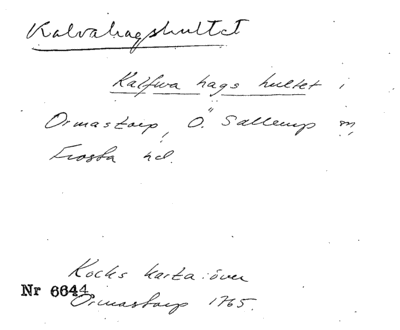 Kalvahagshultet
Kalfwa hags hultet i
Ormastorp, Ö. Sallerup sn,
Frosta hd.
Kocks karta över
Nr 6644
Ormastorp 1765.